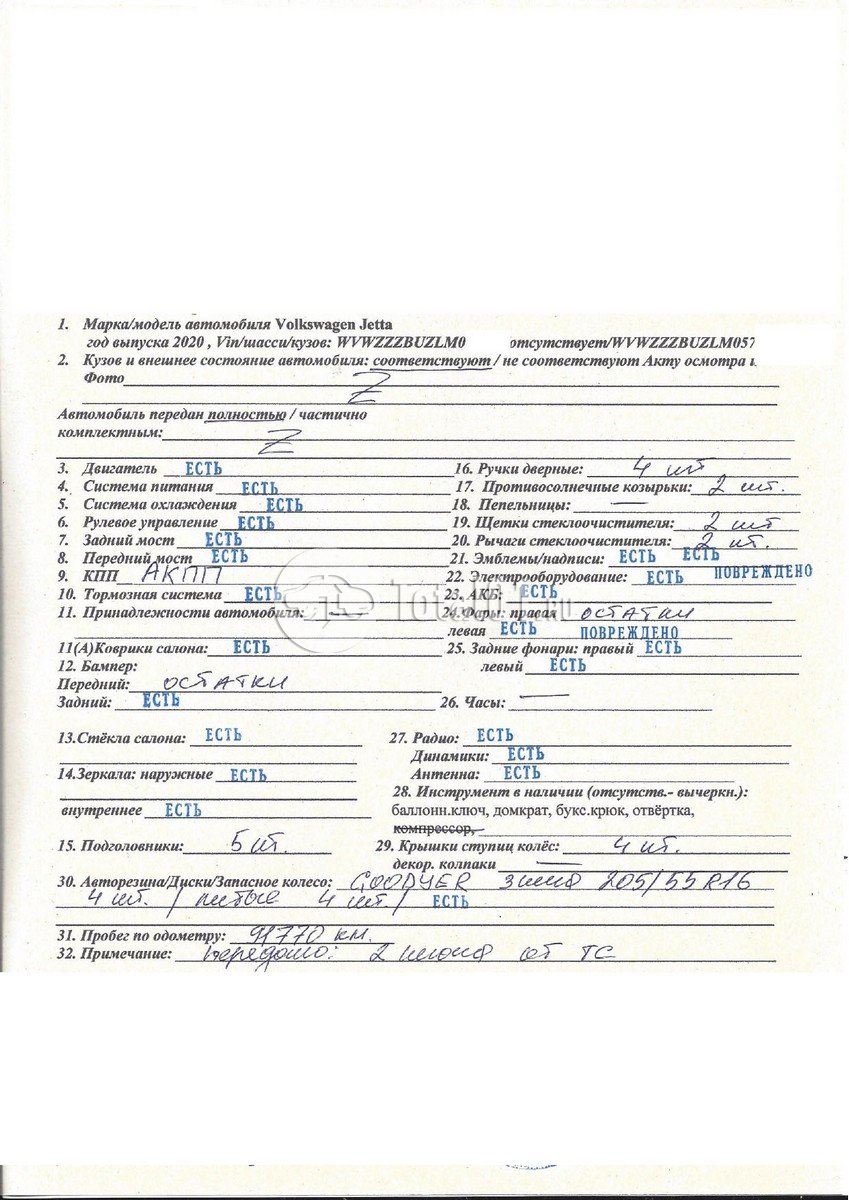 1. Марка/модель автомобиля Volkswagen Jetta
год выпуска 2020 , Vin/шасси/кузов: WVWZZZBUZLM0 отсутствует/WVWZZZBUZLM057
2. Кузов и внешнее состояние автомобиля: соответствуют / не соответствуют Акту осмотра и
Фото Z
Автомобиль передан полностью / частично
комплектным: Z
3. Двигатель ЕСТЬ
4. Система питания ЕСТЬ
5. Система охлаждения ЕСТЬ
6. Рулевое управление ЕСТЬ
7. Задний мост ЕСТЬ
8. Передний мост ЕСТЬ
9. КПП АКПП
10. Тормозная система ЕСТЬ
11. Принадлежности автомобиля: —
11(А)Коврики салона: ЕСТЬ
12. Бампер:
Передний: ОСТАТКИ
Задний: ЕСТЬ
13.Стёкла салона: ЕСТЬ
14.Зеркала: наружные ЕСТЬ
внутреннее ЕСТЬ
15. Подголовники: 5 шт.
16. Ручки дверные: 4 шт
17. Противосолнечные козырьки: 2 шт.
18. Пепельницы: —
19. Щетки стеклоочистителя: 2 шт
20. Рычаги стеклоочистителя: 2 шт.
21. Эмблемы/надписи: ЕСТЬ ЕСТЬ
22. Электрооборудование: ЕСТЬ ПОВРЕЖДЕНО
23. АКБ: ЕСТЬ
24.Фары: правая ОСТАТКИ
левая ЕСТЬ ПОВРЕЖДЕНО
25. Задние фонари: правый ЕСТЬ
левый ЕСТЬ
26. Часы: —
27. Радио: ЕСТЬ
Динамики: ЕСТЬ
Антенна: ЕСТЬ
28. Инструмент в наличии (отсутств.- вычеркн.):
баллонн.ключ, домкрат, букс.крюк, отвёртка,
компрессор,
29. Крышки ступиц колёс: 4 шт.
декор. колпаки —
30. Авторезина/Диски/Запасное колесо: GOODYER зима 205/55 R16
4 шт. / литые 4 шт. / ЕСТЬ
31. Пробег по одометру: 91770 км.
32. Примечание: Передано: 2 ключа от ТС